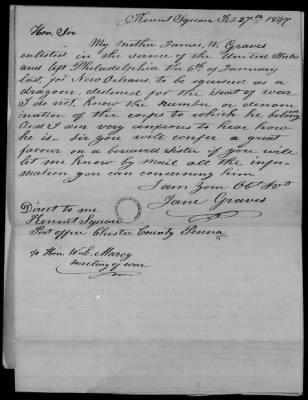 Kennet Square Feb 27th 1847
Hon, Sir
My brother James, W. Graves
enlisted in the service of the United States
and left Philadelphia the 6th of January
last, for New Orleans, to be equiped as a
dragoon, destined for the Seat of war
I do not, know the number or denom
ination of the corps to which he belong
And I am very anxious to hear how
he is Sir you will confer a great
favour on a bereaved Sister if you will
let me know by mail all the infor-
mation you can concerning him
I am Your Obt Svt
Jane Graves
Direct to me
Kennet Square
Post office Chester County Penna
to Hon. W. L. Marcy
Secretary of war